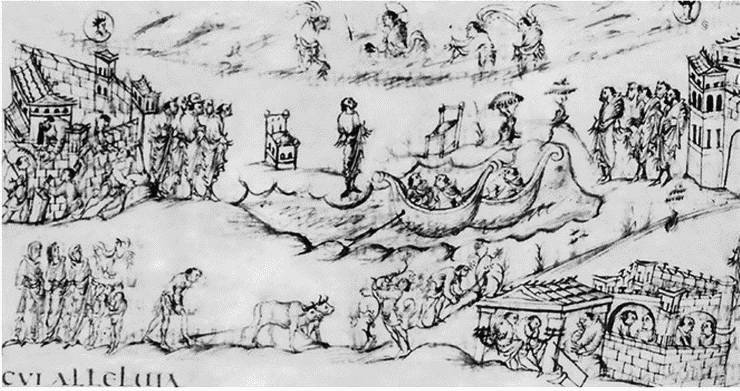 CVI ALLELUIA